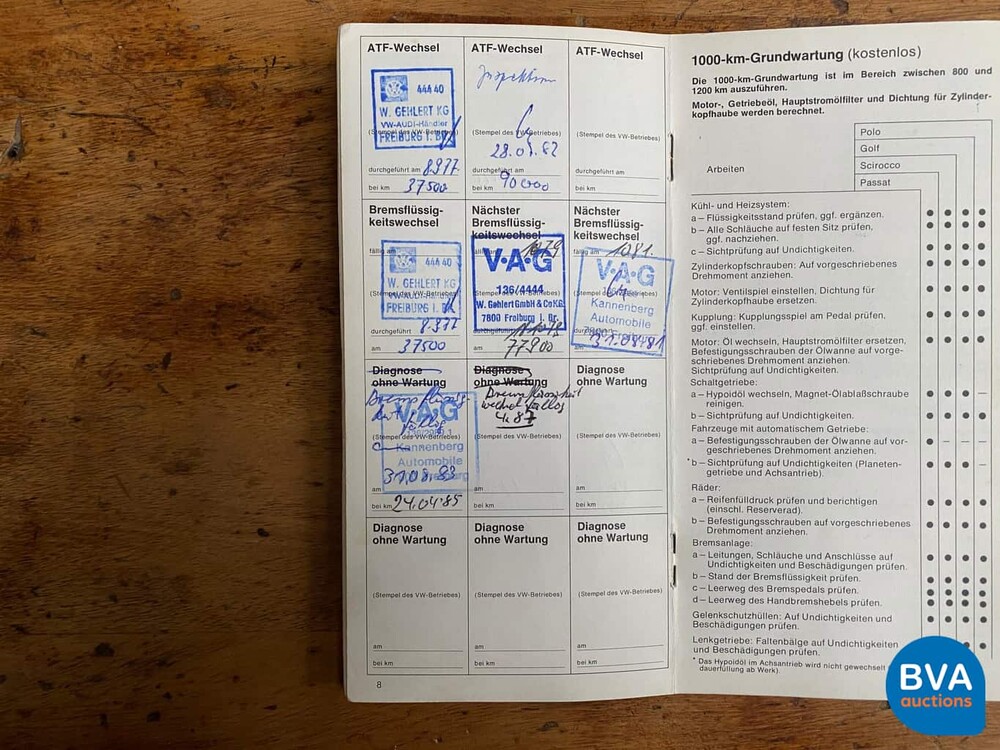 ATF-Wechsel
444 40
W. GEHLERT KG
VW-AUDI-Händler
FREIBURG I. BR.
(Stempel des VW-Betriebes)
durchgeführt am 8.9.77
bei km 37500
ATF-Wechsel
Inspektion
(Stempel des VW-Betriebes)
durchgeführt am
bei km 90000
ATF-Wechsel
(Stempel des VW-Betriebes)
durchgeführt am
bei km
Bremsflüssig-
keitswechsel
fällig am
444 40
W. GEHLERT KG
VW-AUDI-Händler
FREIBURG I. BR.
durchgeführt
am 37500
Nächster
Bremsflüssig-
keitswechsel
V·A·G
136/4444
W. Gehlert GmbH & Co KG
7800 Freiburg i. Br.
am 77900
Nächster
Bremsflüssig-
keitswechsel
fällig am 1081
V·A·G
Kannenberg
Automobile
7800 Freiburg
31.08.81
Diagnose
ohne Wartung
V·A·G
Kannenberg
Automobile
31.08.83
am
bei km 24.04.85
Diagnose
ohne Wartung
4.87
(Stempel des VW-Betriebes)
am
bei km
Diagnose
ohne Wartung
(Stempel des VW-Betriebes)
am
bei km
Diagnose
ohne Wartung
(Stempel des VW-Betriebes)
am
bei km
Diagnose
ohne Wartung
(Stempel des VW-Betriebes)
am
bei km
Diagnose
ohne Wartung
(Stempel des VW-Betriebes)
am
bei km
8
1000-km-Grundwartung (kostenlos)
Die 1000-km-Grundwartung ist im Bereich zwischen 800 und
1200 km auszuführen.
Motor-, Getriebeöl, Hauptstromölfilter und Dichtung für Zylinder-
kopfhaube werden berechnet.
Arbeiten
Polo
Golf
Scirocco
Passat
Kühl- und Heizsystem:
a – Flüssigkeitsstand prüfen, ggf. ergänzen.
b – Alle Schläuche auf festen Sitz prüfen,
ggf. nachziehen.
c – Sichtprüfung auf Undichtigkeiten.
Zylinderkopfschrauben: Auf vorgeschriebenes
Drehmoment anziehen.
Motor: Ventilspiel einstellen, Dichtung für
Zylinderkopfhaube ersetzen.
Kupplung: Kupplungsspiel am Pedal prüfen,
ggf. einstellen.
Motor: Öl wechseln, Hauptstromölfilter ersetzen,
Befestigungsschrauben der Ölwanne auf vorge-
schriebenes Drehmoment anziehen.
Sichtprüfung auf Undichtigkeiten.
Schaltgetriebe:
a – Hypoidöl wechseln, Magnet-Ölablaßschraube
reinigen.
b – Sichtprüfung auf Undichtigkeiten.
Fahrzeuge mit automatischem Getriebe:
a – Befestigungsschrauben der Ölwanne auf vor-
geschriebenes Drehmoment anziehen.
*b – Sichtprüfung auf Undichtigkeiten (Planeten-
getriebe und Achsantrieb).
Räder:
a – Reifenfülldruck prüfen und berichtigen
(einschl. Reserverad).
b – Befestigungsschrauben auf vorgeschriebenes
Drehmoment anziehen.
Bremsanlage:
a – Leitungen, Schläuche und Anschlüsse auf
Undichtigkeiten und Beschädigungen prüfen.
b – Stand der Bremsflüssigkeit prüfen.
c – Leerweg des Bremspedals prüfen.
d – Leerweg des Handbremshebels prüfen.
Gelenkschutzhüllen: Auf Undichtigkeiten und
Beschädigungen prüfen.
Lenkgetriebe: Faltenbälge auf Undichtigkeiten
und Beschädigungen prüfen.
* Das Hypoidöl im Achsantrieb wird nicht gewechselt
dauerfüllung ab Werk).
BVA
auctions